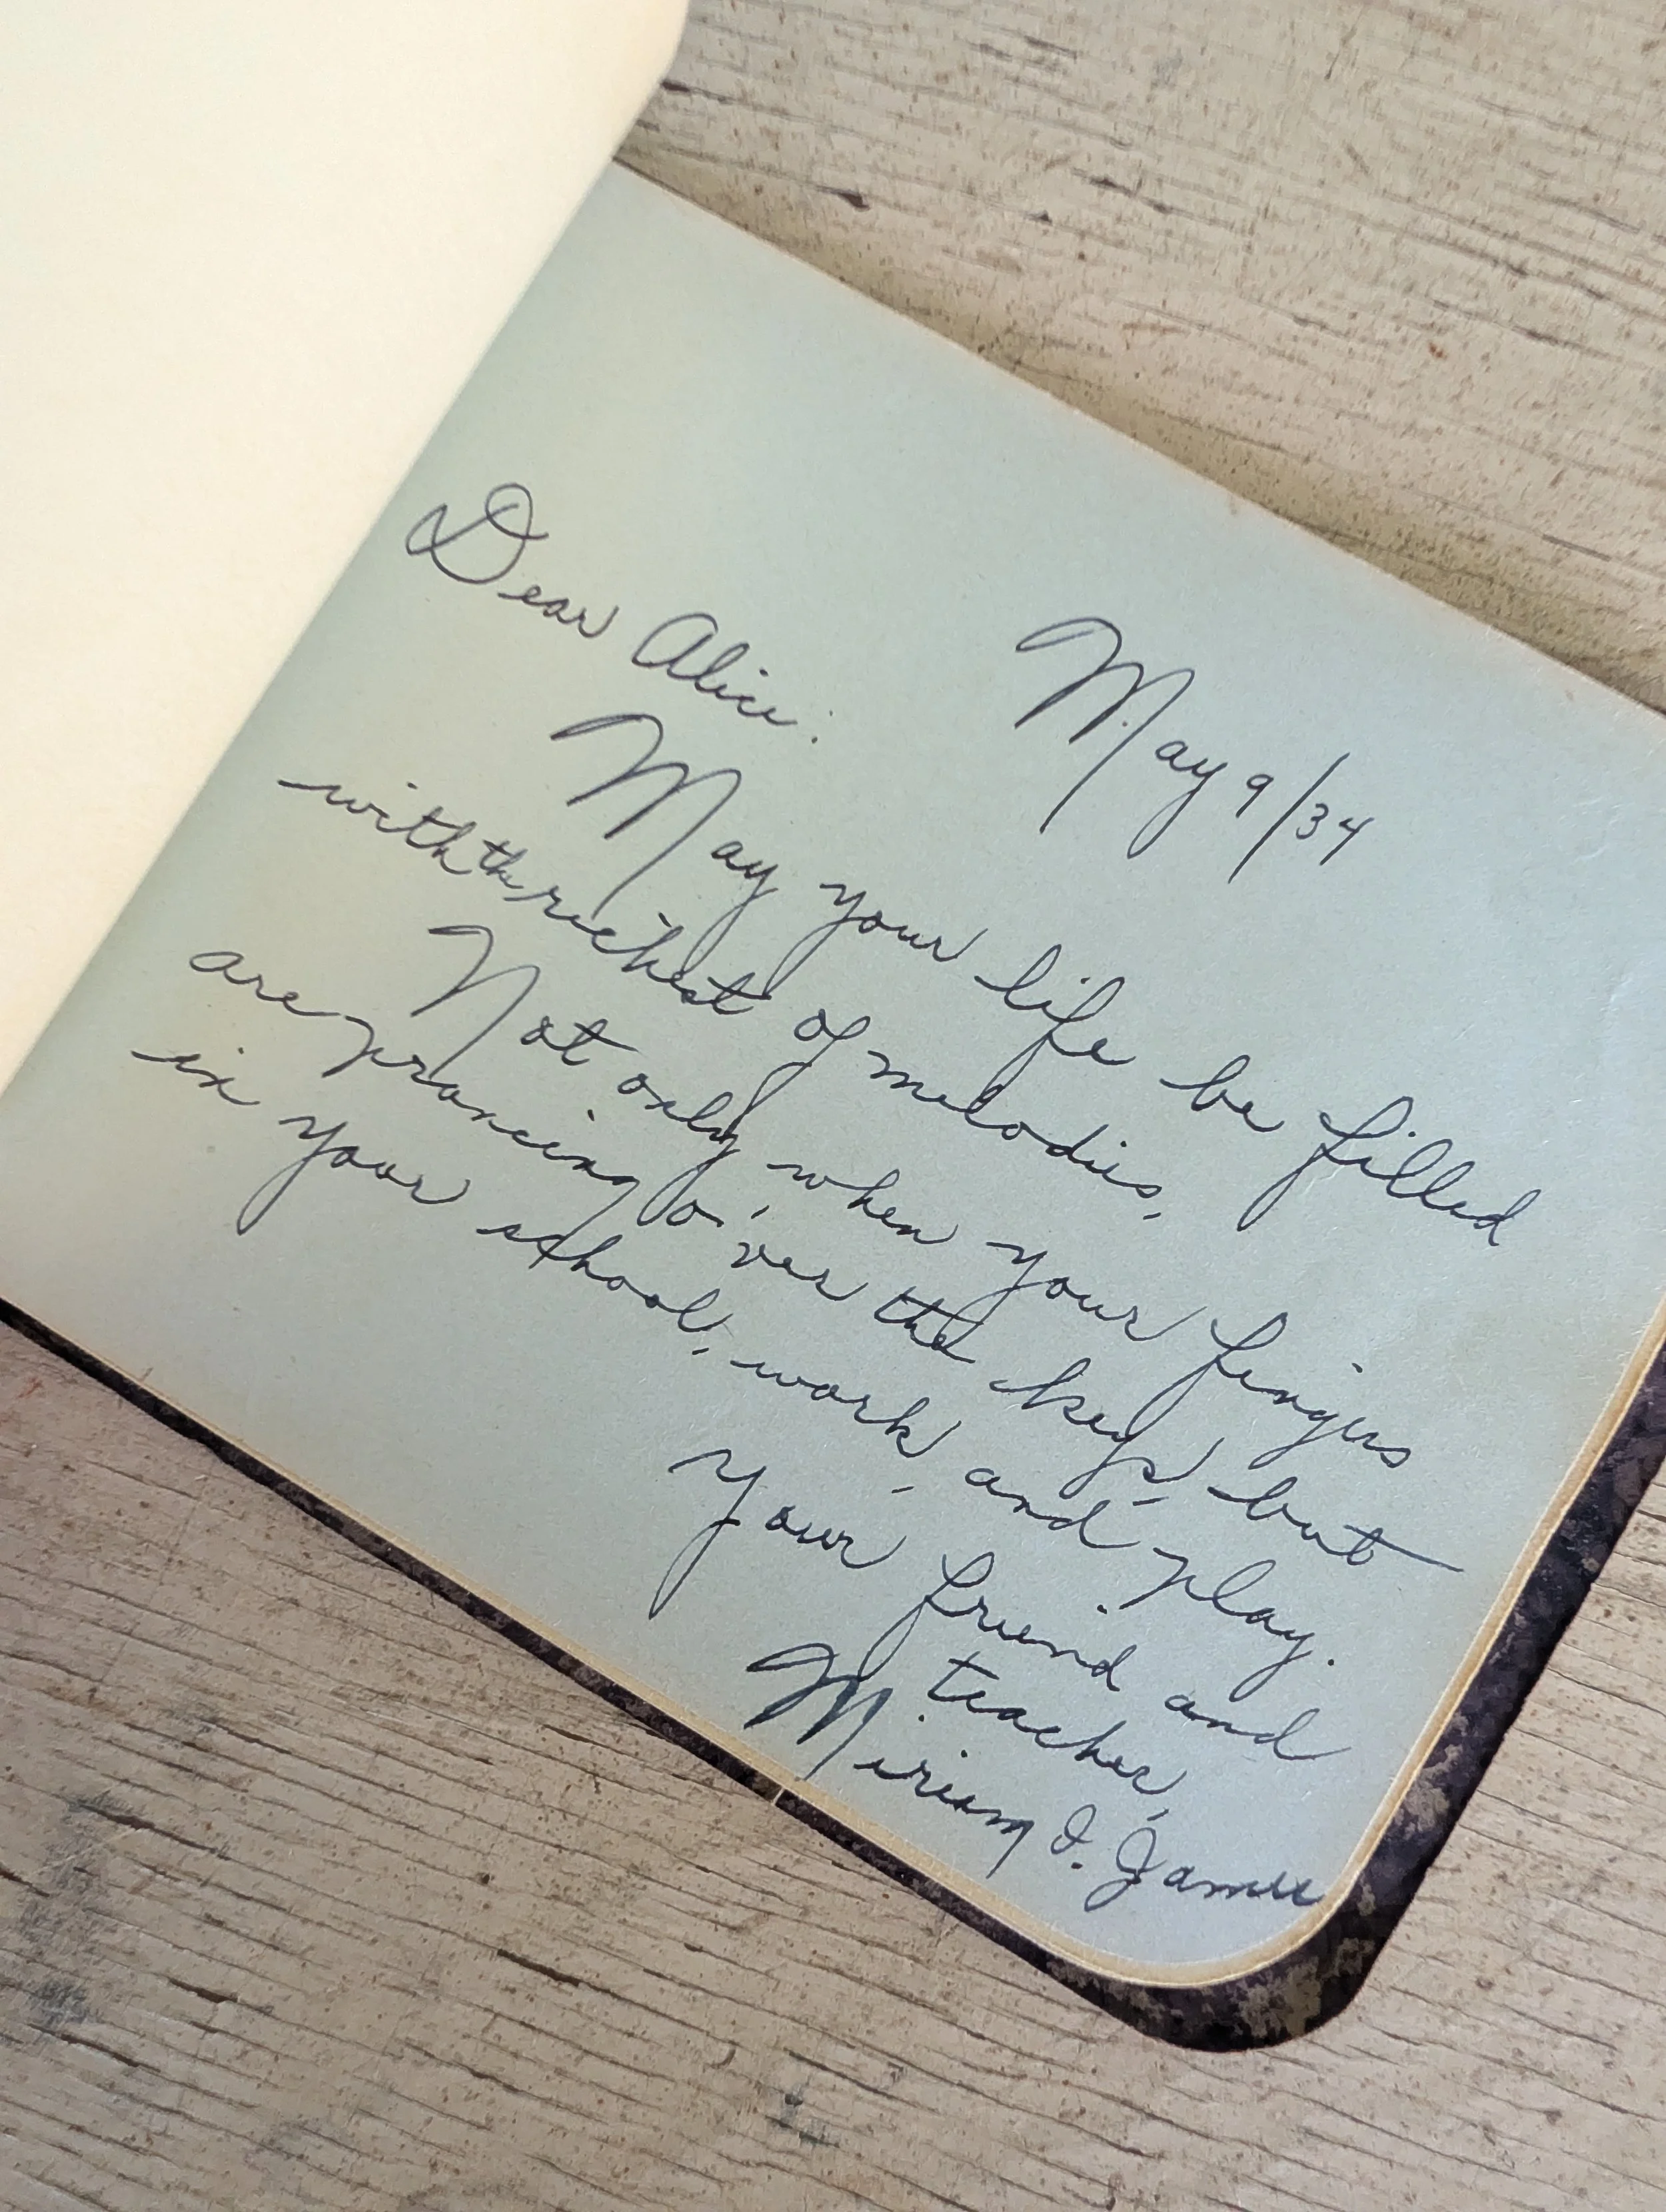 May 9/34
Dear Alice:
May your life be filled
with the richest of melodies,
Not only when your fingers
are prancing o'ver the keys, but
in your school, work, and play.
Your friend and
teacher,
Miriam I. James